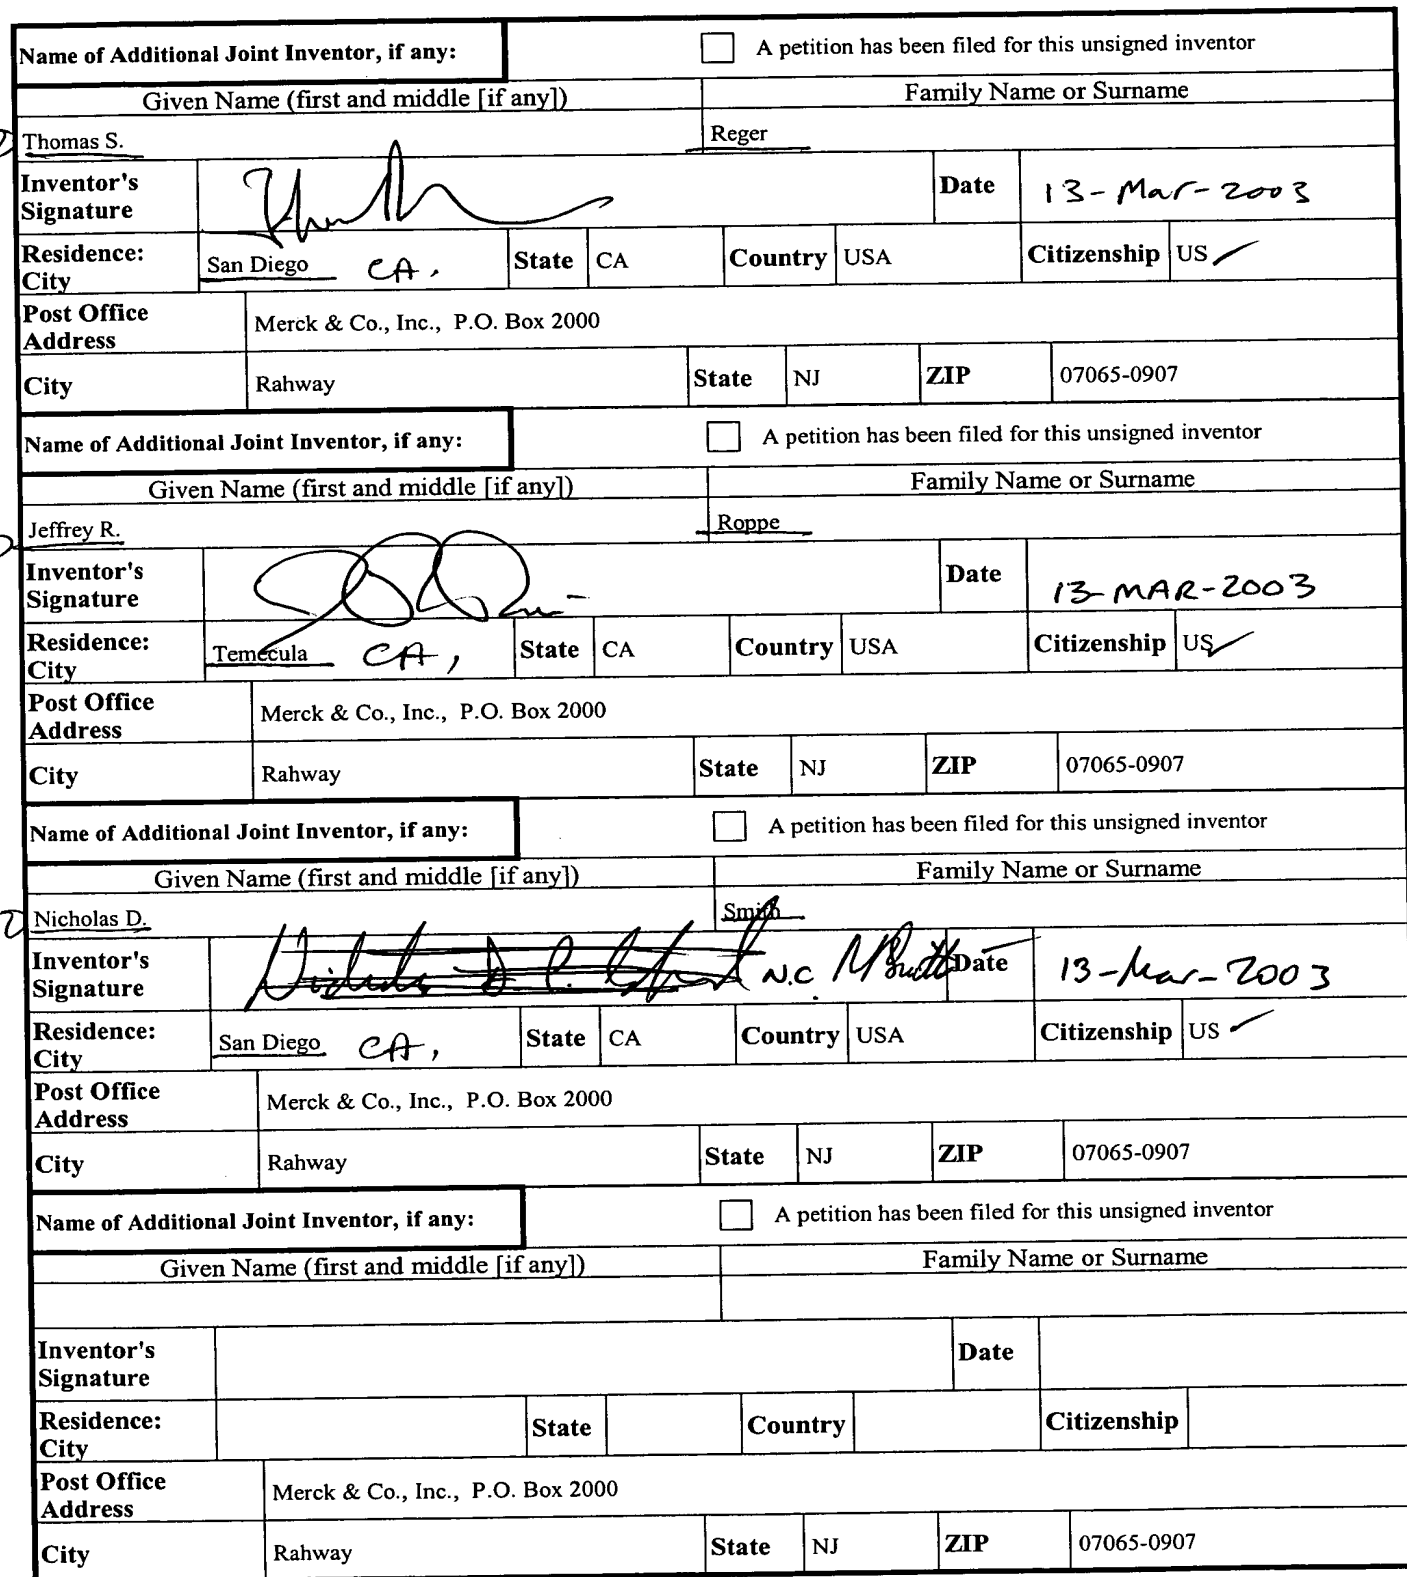 Name of Additional Joint Inventor, if any: A petition has been filed for this unsigned inventor
Given Name (first and middle [if any]) Family Name or Surname
Thomas S. Reger
Inventor's Signature Date 13-Mar-2003
Residence: City San Diego CA. State CA Country USA Citizenship US
Post Office Address Merck & Co., Inc., P.O. Box 2000
City Rahway State NJ ZIP 07065-0907
Name of Additional Joint Inventor, if any: A petition has been filed for this unsigned inventor
Given Name (first and middle [if any]) Family Name or Surname
Jeffrey R. Roppe
Inventor's Signature Date 13-MAR-2003
Residence: City Temecula CA, State CA Country USA Citizenship US
Post Office Address Merck & Co., Inc., P.O. Box 2000
City Rahway State NJ ZIP 07065-0907
Name of Additional Joint Inventor, if any: A petition has been filed for this unsigned inventor
Given Name (first and middle [if any]) Family Name or Surname
Nicholas D. Smith
Inventor's Signature N.C Date 13-Mar-2003
Residence: City San Diego CA, State CA Country USA Citizenship US
Post Office Address Merck & Co., Inc., P.O. Box 2000
City Rahway State NJ ZIP 07065-0907
Name of Additional Joint Inventor, if any: A petition has been filed for this unsigned inventor
Given Name (first and middle [if any]) Family Name or Surname
Inventor's Signature Date
Residence: City State Country Citizenship
Post Office Address Merck & Co., Inc., P.O. Box 2000
City Rahway State NJ ZIP 07065-0907